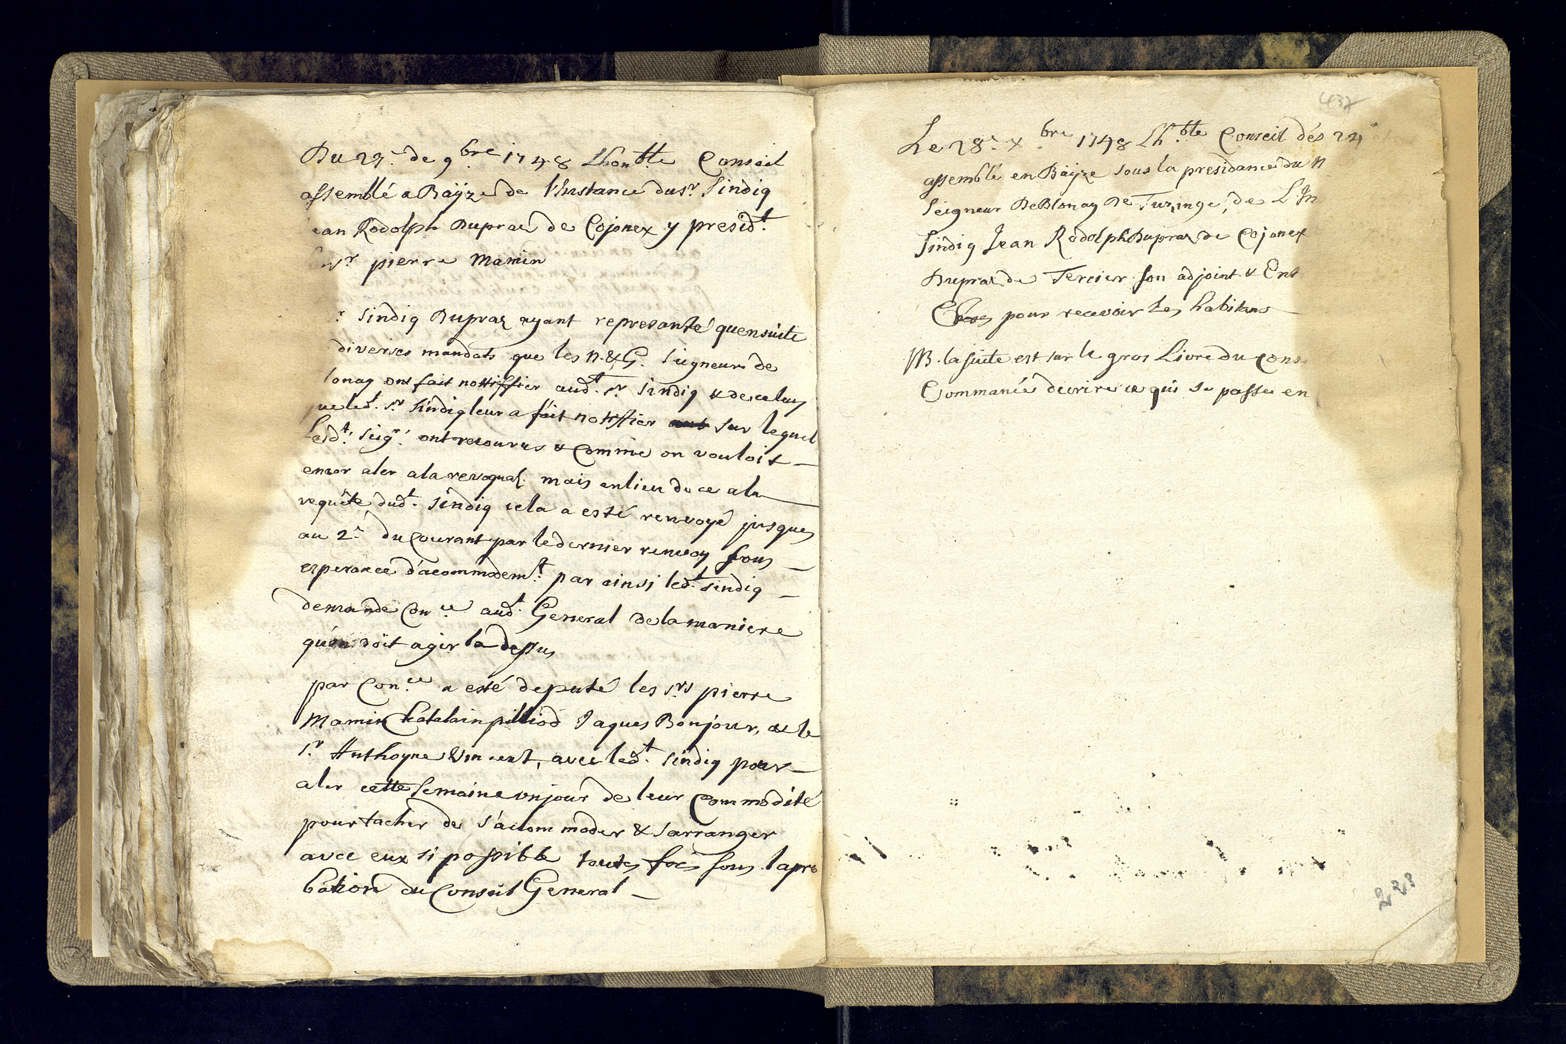 Du 27.e de 9.bre 1748 Lhon.ble Conseil
assemblé a Bäÿze de l'Instance du sr. Sindiq
ean Rodolph Dupraz de Cojonex y presid.t
sr pierre Mamin
r Sindiq Dupraz ayant representé quensuite
diverses mandats que les N. & G. Seigneurs de
lonay ont fait nottiffier aud.t sr Sindiq & de celuy
que led.t sr Sindiq leur a fait nottiffier sur lequel
lesd.ts Seigr. ont recourus & comme on vouloit
encor aler a la mais en lieu de ce a la
requête dud.t Sindiq cela a esté renvoyé jusques
au 2.e du Courant par le dernier renvoy sous
esperance d'acommodem.t par ainsi led.t Sindiq
demande Con.ce aud.t General de la maniere
qu'on doit agir la dessus
par Con.ce a esté deputé les srs pierre
Mamin Chatelain pilliod Jaques Bonjour, & le
sr. Anthoyne Vincent, avec led.t Sindiq pour
aler cette semaine un jour de leur Commodité
pour tacher de s'acommoder & s'arranger
avec eux si possible toutes fois sous lapro
bation du Conseil General
437
Le 28.e X.bre 1748 Lh.ble Conseil des 24
assemblé en Bäÿze sous la presidance du N
Seigneur DeBlonay De Turinge, de L'In
Sindiq Jean Rodolph Dupraz de Cojonex
Dupraz de Tercier son adjoint & Ent
pour recevoir les habitans
NB. la suite est sur le gros Livre du Cons
Commancé decrire ce qui se passe en
223